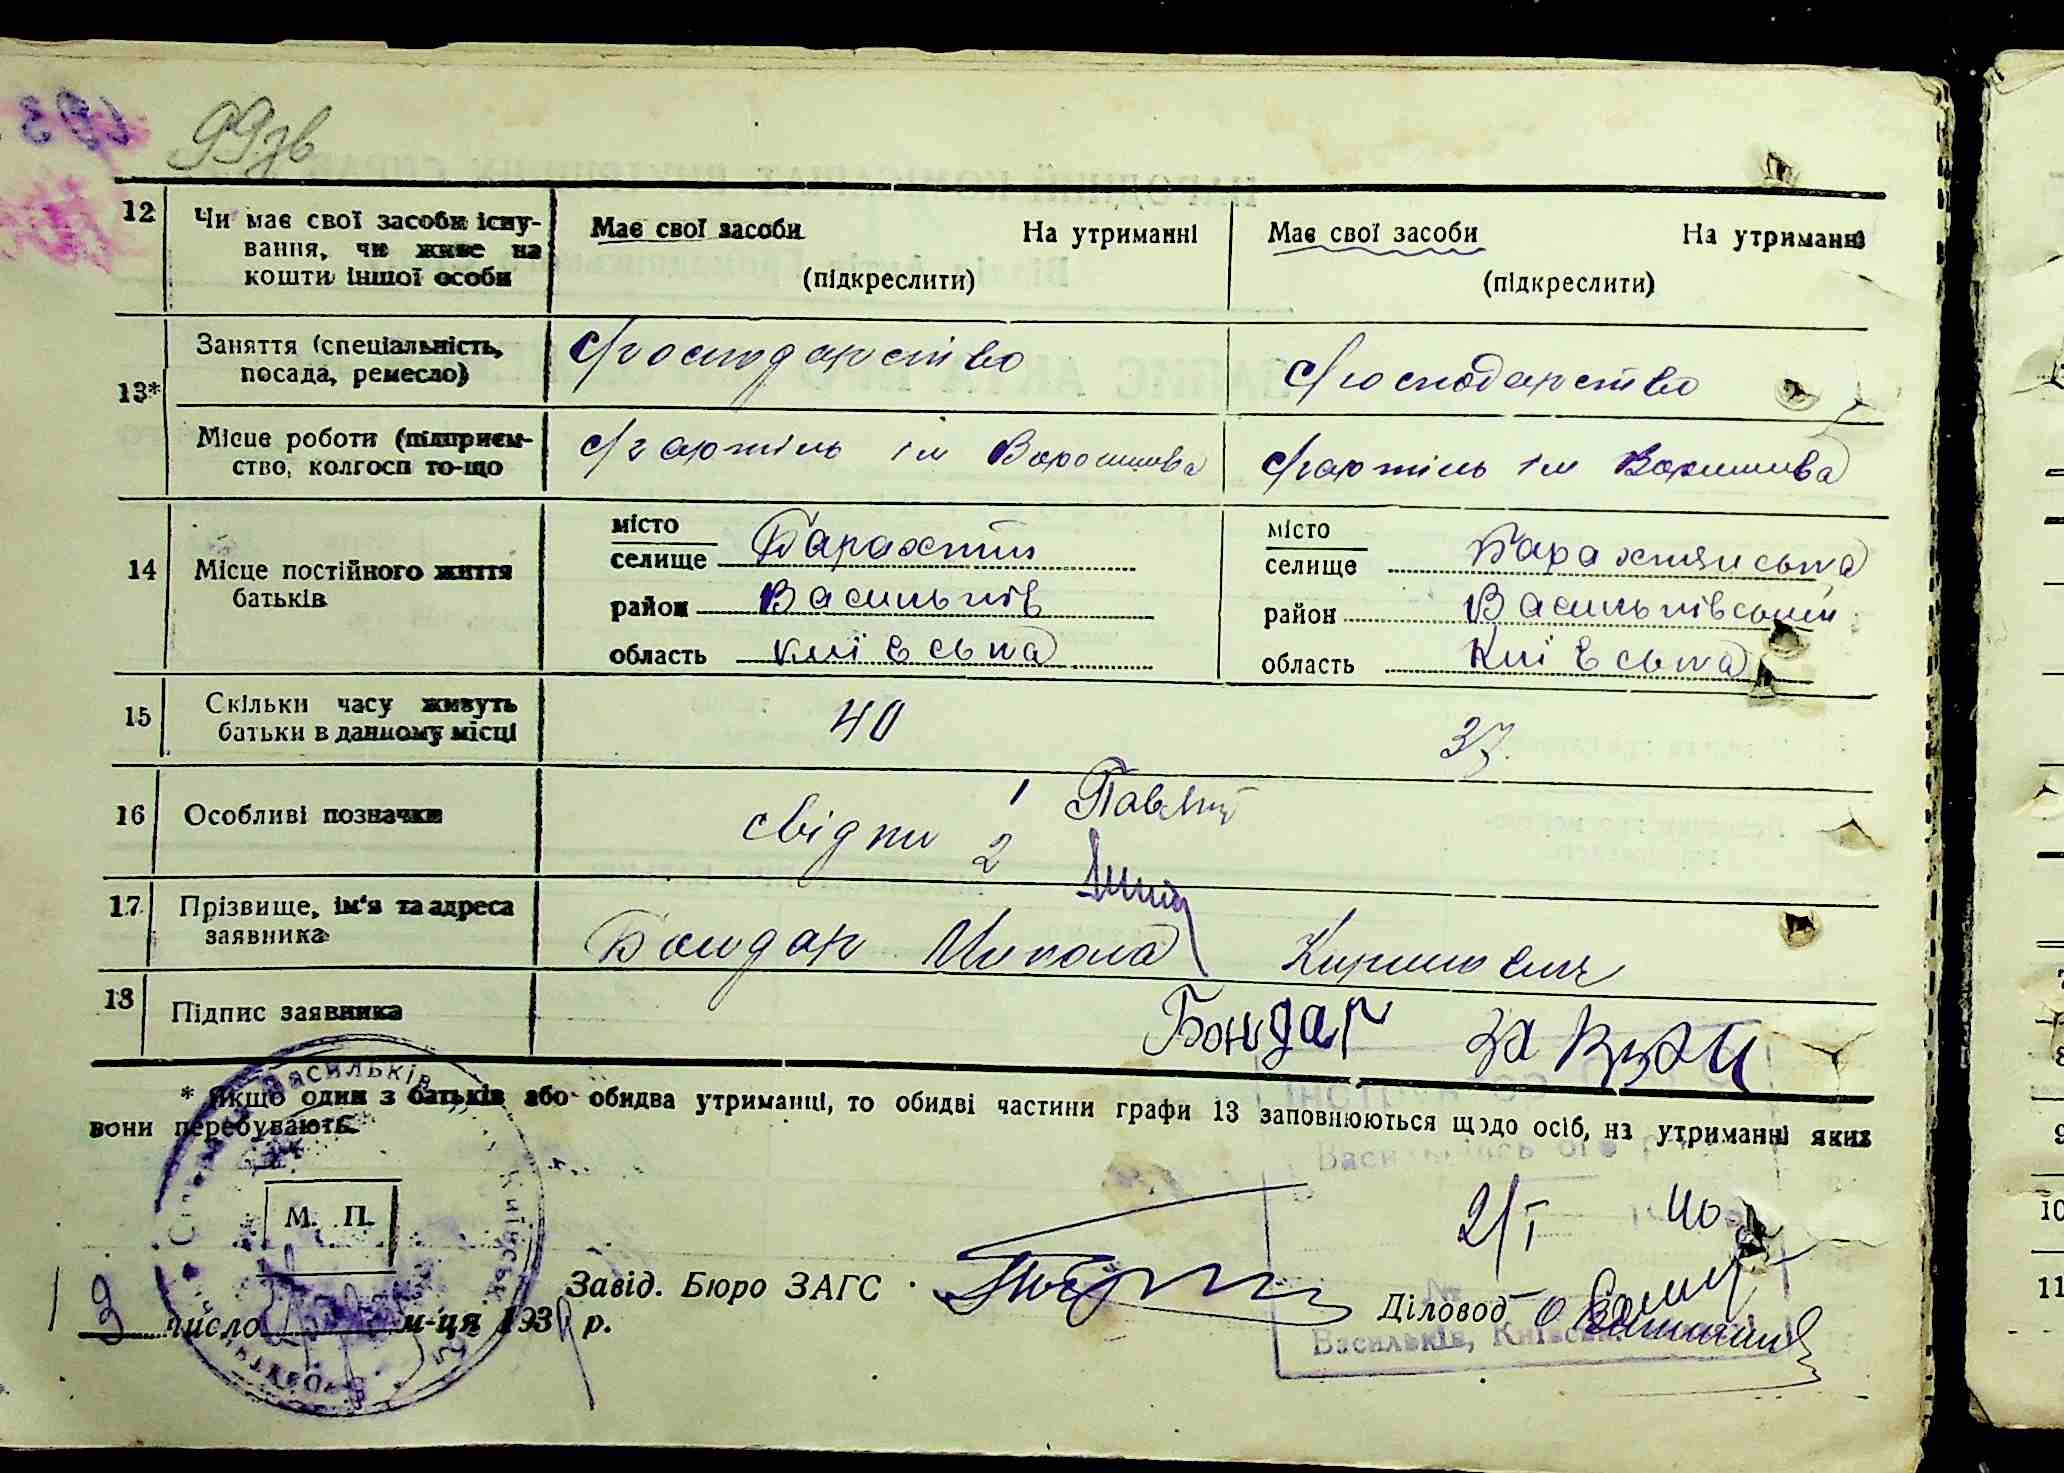 99зв
12 Чи має свої засоби існу-
вання, чи живе на
кошти іншої особи
Має свої засоби На утриманні
(підкреслити)
Має свої засоби На утриманні
(підкреслити)
13* Заняття (спеціальність,
посада, ремесло)
с/господарство
с/господарство
Місце роботи (підприєм-
ство, колгосп то-що
с/г артіль ім Ворошилова
с/г артіль ім Ворошилова
14 Місце постійного життя
батьків
місто
селище Барахти
район Васильків
область Київська
місто
селище Барахтянська
район Васильківський
область Київська
15 Скільки часу живуть
батьки в данному місці
40
37
16 Особливі позначки
свідки 1
2
17 Прізвище, ім'я та адреса
заявника
Бондар Микола
18 Підпис заявника
Бондар
* Якщо один з батьків або обидва утриманці, то обидві частини графи 13 заповнюються щодо осіб, на утриманні яких
вони перебувають.
М. П.
2/I 40
Завід. Бюро ЗАГС
Діловод
13 число м-ця 1939 р.
Васильків, Київськ